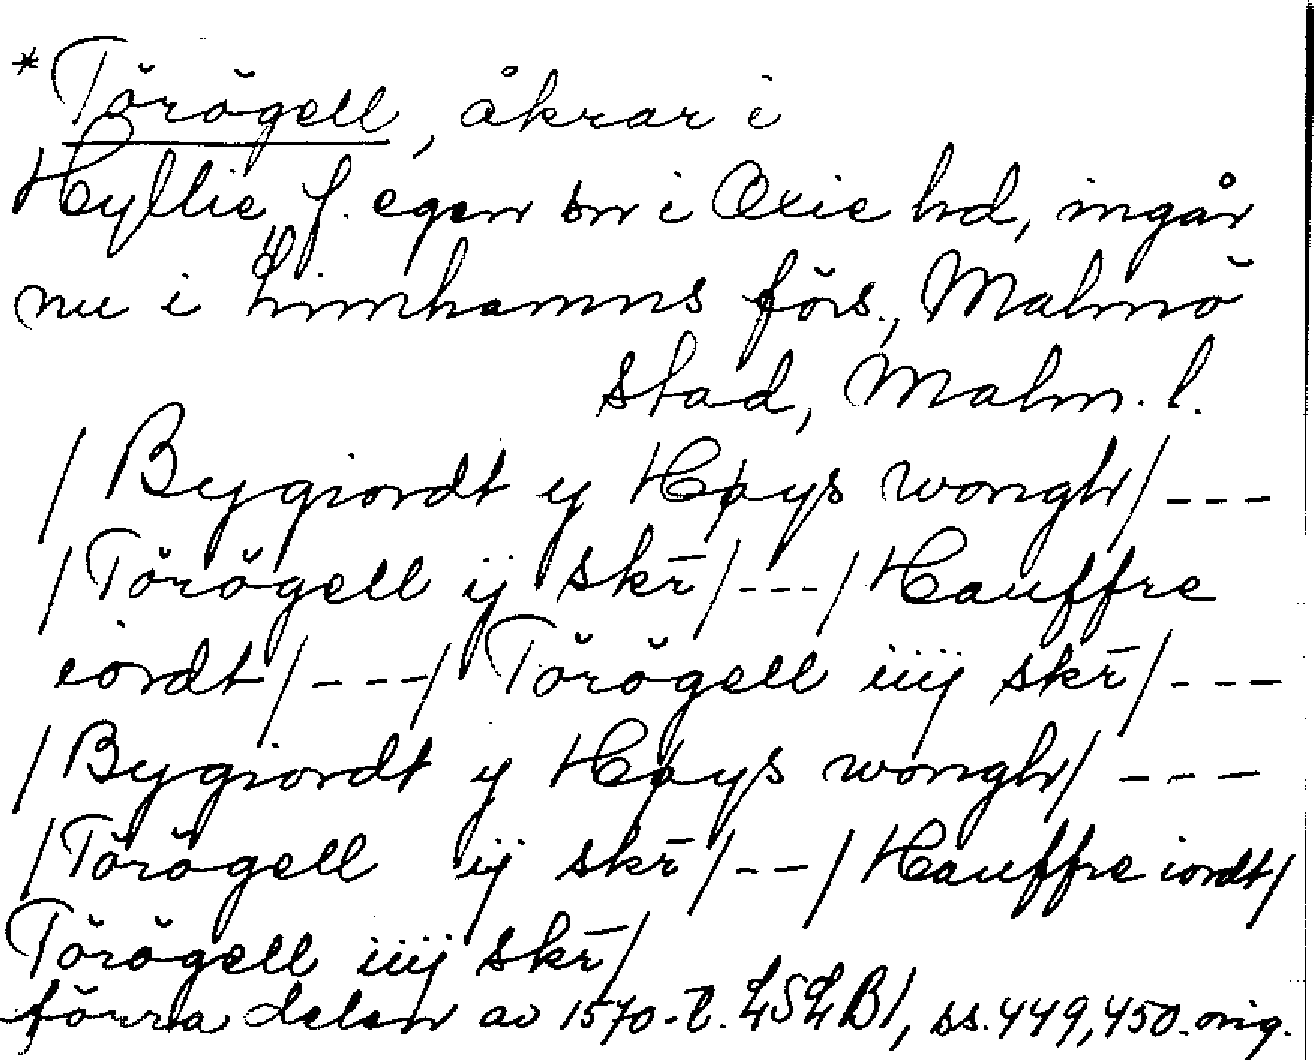 *Törögell, åkrar i
Hyllie, f. egen sn i Oxie hd, ingår
nu i Limhamns förs., Malmö
stad, Malm. l.
/Bygiordt y Høys wongh/---
/Törögell ij skr̄/---/Hauffre
iordt/---/Törögell iiij skr̄/---
/Bygiordt y Høys wongh/---
/Törögell ij skr̄/---/Hauffre iordt/
Törögell iiij skr̄/
förra delen av 1570-t. LSLB1, ss. 449, 450. orig.